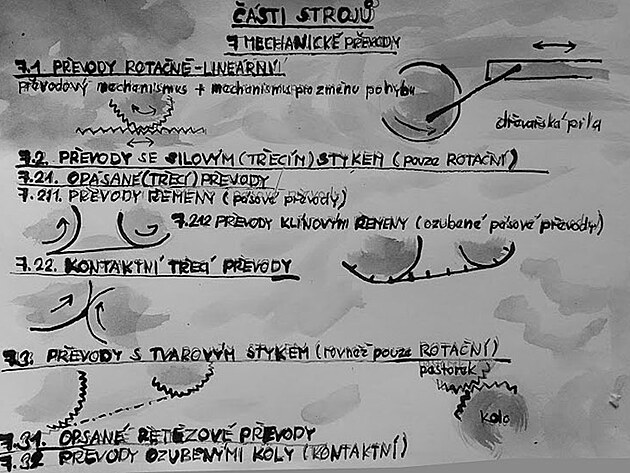 ČÁSTI STROJŮ
7 MECHANICKÉ PŘEVODY
7.1. PŘEVODY ROTAČNĚ-LINEÁRNÍ
převodový mechanismus + mechanismus pro změnu pohybu
dřevařská pila
7.2. PŘEVODY SE SILOVÝM (TŘECÍM) STYKEM (pouze ROTAČNÍ)
7.21. OPÁSANÉ (TŘECÍ) PŘEVODY
7.211. PŘEVODY ŘEMENY (pásové převody)
7.212 PŘEVODY KLÍNOVÝM ŘEMENY (ozubené pásové převody)
7.22. KONTAKTNÍ TŘECÍ PŘEVODY
7.3. PŘEVODY S TVAROVÝM STYKEM (rovněž pouze ROTAČNÍ)
pastorek
kolo
7.31. OPSANÉ ŘETĚZOVÉ PŘEVODY
7.32 PŘEVODY OZUBENÝMI KOLY (KONTAKTNÍ)